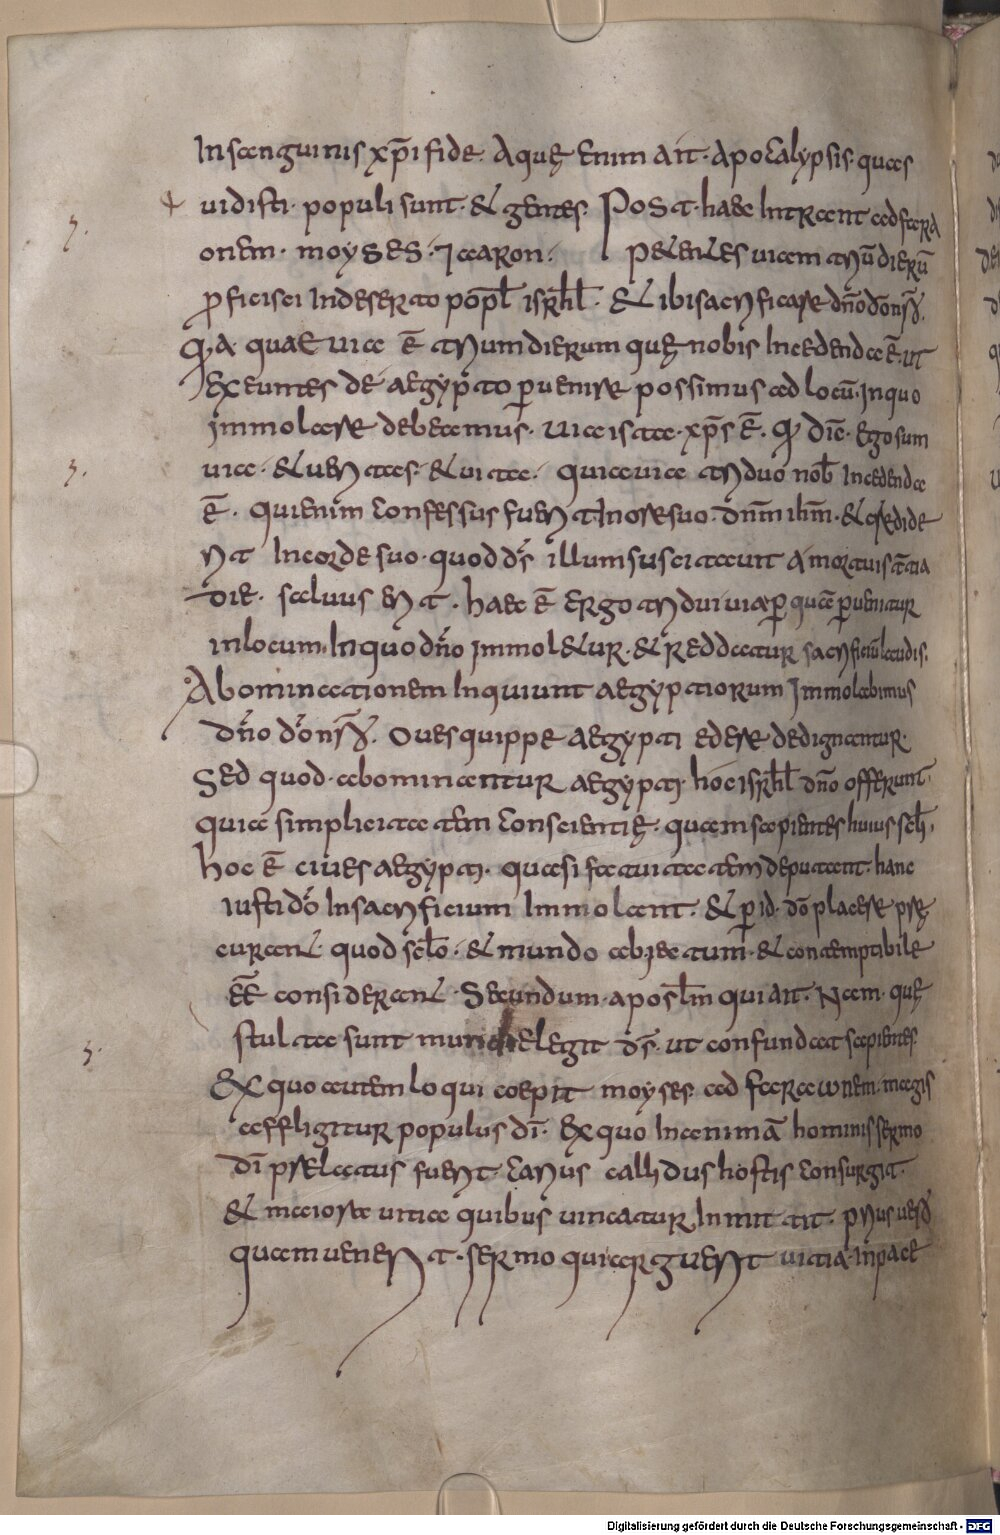 In sanguinis xp̄i fide. Aquę enim ait. apocalypsis. quas
uidisti. populi sunt. & gentes. Post. haec intrant ad fara
onem. moyses. ⁊ aaron. petentes uiam triū dierū
proficisci in deserto popl̄ isrł̄. & ibi sacrificare dn̄o dō nr̄o.
Quia. quae uia ē trium dierum quę nobis incedenda ē. ut
exeuntes de aegypto peruenire possimus ad locū. in quo
immolare debeamus. uia ista. xp̄s ē. qui dic̄. ego sum
uia. & ueritas. & uita. quia uia triduo nob̄ incedenda
ē. qui enim confessus fuerit In ore suo. dnm̄ ihm̄. & credide
rit In corde suo. quod d̄s illum suscitauit a mortuis tertia
die. saluus erit. haec ē ergo tridui uia per quā peruenitur
in locum. In quo dn̄o immol&ur. & reddatur sacrificiū laudis.
Abominationem inquiunt aegyptiorum immolabimus
dn̄o dō nr̄o. oues quippe aegypti edere dedignantur.
Sed quod. abominantur aegypti. hoc isrł̄ dn̄o offerunt.
quia simplicitatem conscientię. quam sapientes huius sc̄li.
hoc ē ciues aegypti. quasi fatuitatem deputant. hanc
iusti dō In sacrificium Immolant. & per id. dō placere prę
curant quod sc̄lo. & mundo abiectum. & contemptibile
eē considerant. Secundum. apostl̄m qui ait. Nam. quę
stulta sunt mundi elegit d̄s. ut confundat sapientes.
Ex quo autem loqui coepit moyses. ad faraonem. magis
affligitur populus dī. Ex quo In animā hominis sermo
dī prelatus fuerit. Carius callidus hostis consurgit.
& maiora uitia quibus uincatur Inmittit. prius uero
quam uenerit. sermo qui arguerit uitia. in pace
Digitalisierung gefördert durch die Deutsche Forschungsgemeinschaft - DFG